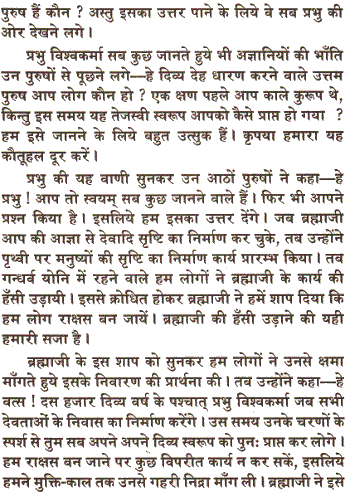 पुरुष हैं कौन ? अस्तु इसका उत्तर पाने के लिये वे सब प्रभु की
ओर देखने लगे।
प्रभु विश्वकर्मा सब कुछ जानते हुये भी अज्ञानियों की भाँति
उन पुरुषों से पूछने लगे—हे दिव्य देह धारण करने वाले उत्तम
पुरुष आप लोग कौन हो ? एक क्षण पहले आप काले कुरूप थे,
किन्तु इस समय यह तेजस्वी स्वरूप आपको कैसे प्राप्त हो गया ?
हम इसे जानने के लिये बहुत उत्सुक हैं। कृपया हमारा यह
कौतूहल दूर करें।
प्रभु की यह वाणी सुनकर उन आठों पुरुषों ने कहा—हे
प्रभु ! आप तो स्वयम् सब कुछ जानने वाले हैं। फिर भी आपने
प्रश्न किया है। इसलिये हम इसका उत्तर देंगे। जब ब्रह्माजी
आप की आज्ञा से देवादि सृष्टि का निर्माण कर चुके, तब उन्होंने
पृथ्वी पर मनुष्यों की सृष्टि का निर्माण कार्य प्रारम्भ किया। तब
गन्धर्व योनि में रहने वाले हम लोगों ने ब्रह्माजी के कार्य की
हँसी उड़ायी। इससे क्रोधित होकर ब्रह्माजी ने हमें शाप दिया कि
हम लोग राक्षस बन जायें। ब्रह्माजी की हँसी उड़ाने की यही
हमारी सजा है।
ब्रह्माजी के इस शाप को सुनकर हम लोगों ने उनसे क्षमा
माँगते हुये इसके निवारण की प्रार्थना की। तब उन्होंने कहा—हे
वत्स ! दस हजार दिव्य वर्ष के पश्चात् प्रभु विश्वकर्मा जब सभी
देवताओं के निवास का निर्माण करेंगे। उस समय उनके चरणों के
स्पर्श से तुम सब अपने अपने दिव्य स्वरूप को पुनः प्राप्त कर लोगे।
हम राक्षस बन जाने पर कुछ विपरीत कार्य न कर सकें, इसलिये
हमने मुक्ति-काल तक उनसे गहरी निद्रा माँग ली। ब्रह्माजी ने इसे